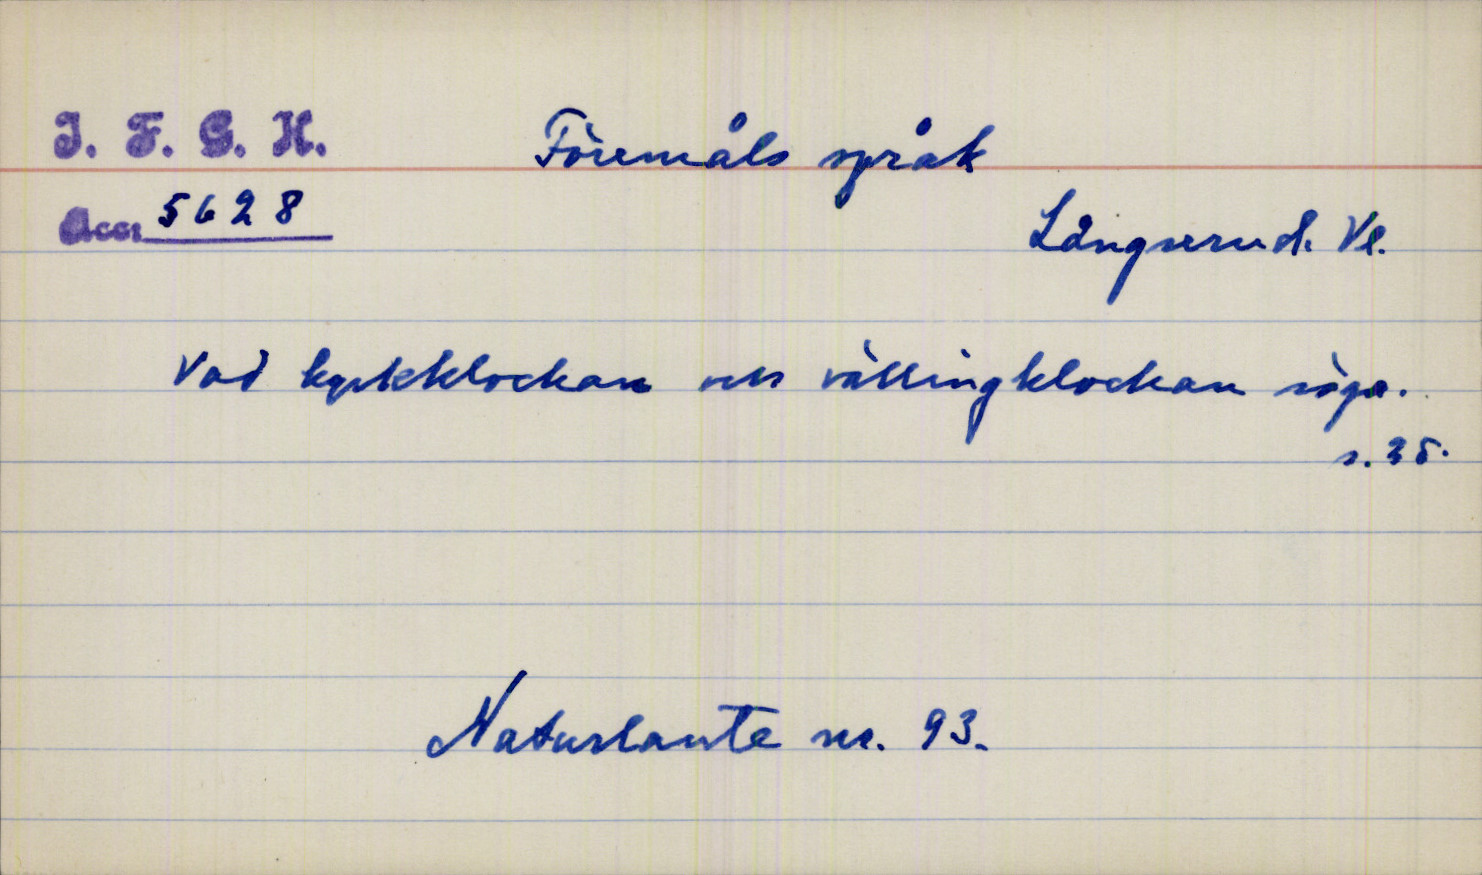 I. F. G. H.
Föremåls språk
Accr 5628
Långserud. Vl.
Vad kyrkklockan och vällingklockan säga.
s. 35.
Naturlaute nr. 93.